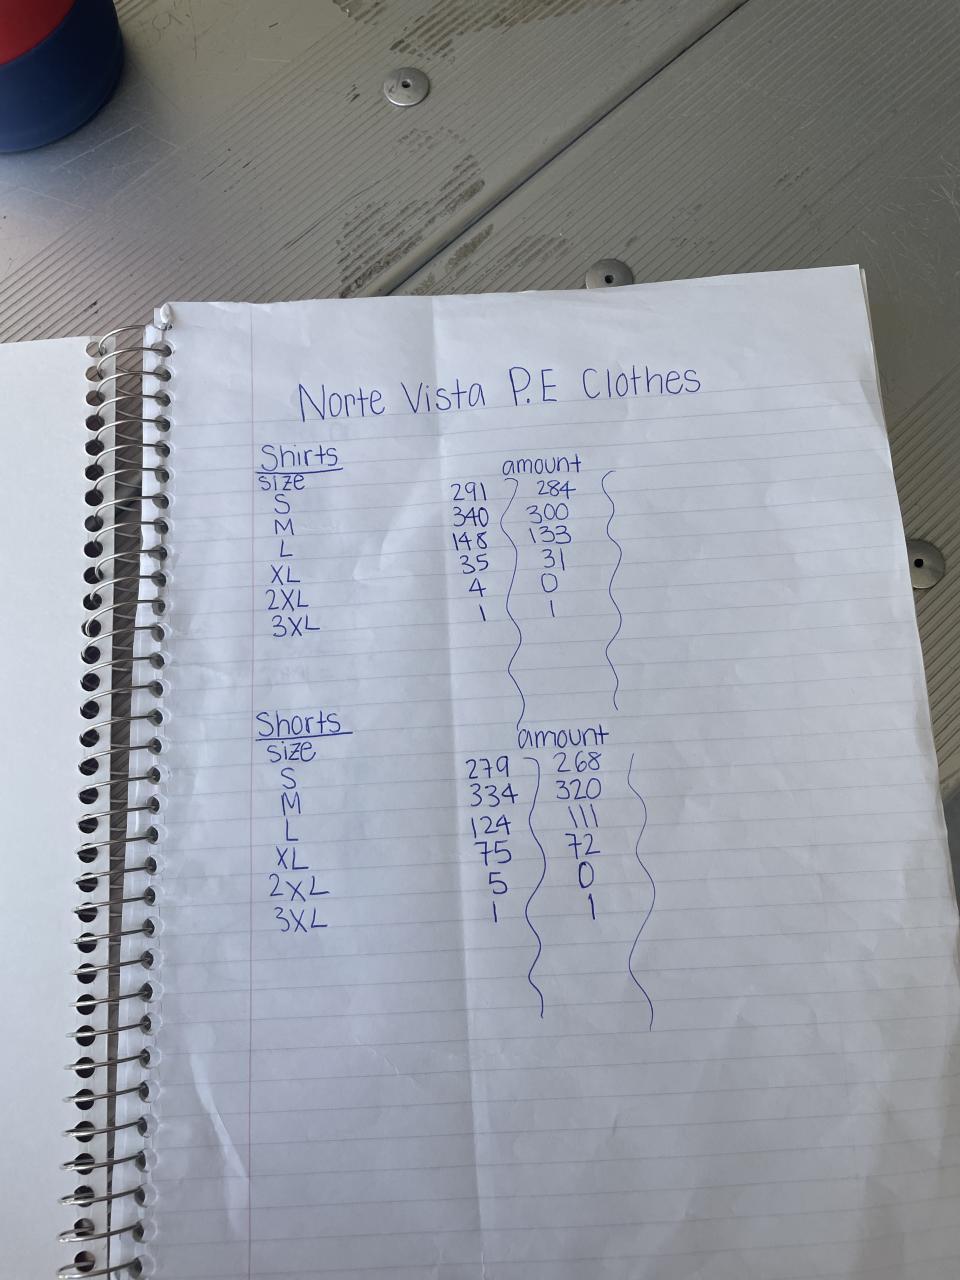 Norte Vista P.E Clothes
Shirts
amount
size
S 291 284
M 340 300
L 148 133
XL 35 31
2XL 4 0
3XL 1 1
Shorts
amount
size
S 279 268
M 334 320
L 124 111
XL 75 72
2XL 5 0
3XL 1 1